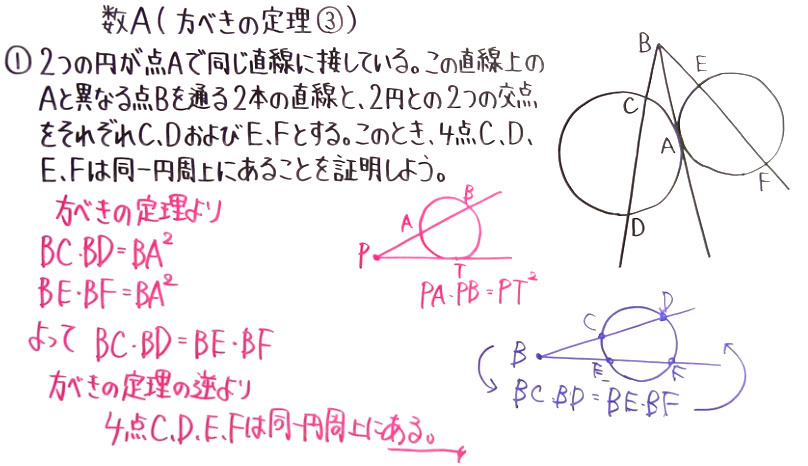 数A(方べきの定理③)
① 2つの円が点Aで同じ直線に接している。この直線上の
Aと異なる点Bを通る2本の直線と、2円との2つの交点
をそれぞれC、DおよびE、Fとする。このとき、4点C、D、
E、Fは同一円周上にあることを証明しよう。
方べきの定理より
BC・BD=BA²
BE・BF=BA²
よって BC・BD=BE・BF
方べきの定理の逆より
4点C、D、E、Fは同一円周上にある。
P
A
B
T
PA・PB=PT²
B
E
C
A
F
D
B
C
D
E
F
BC・BD=BE・BF